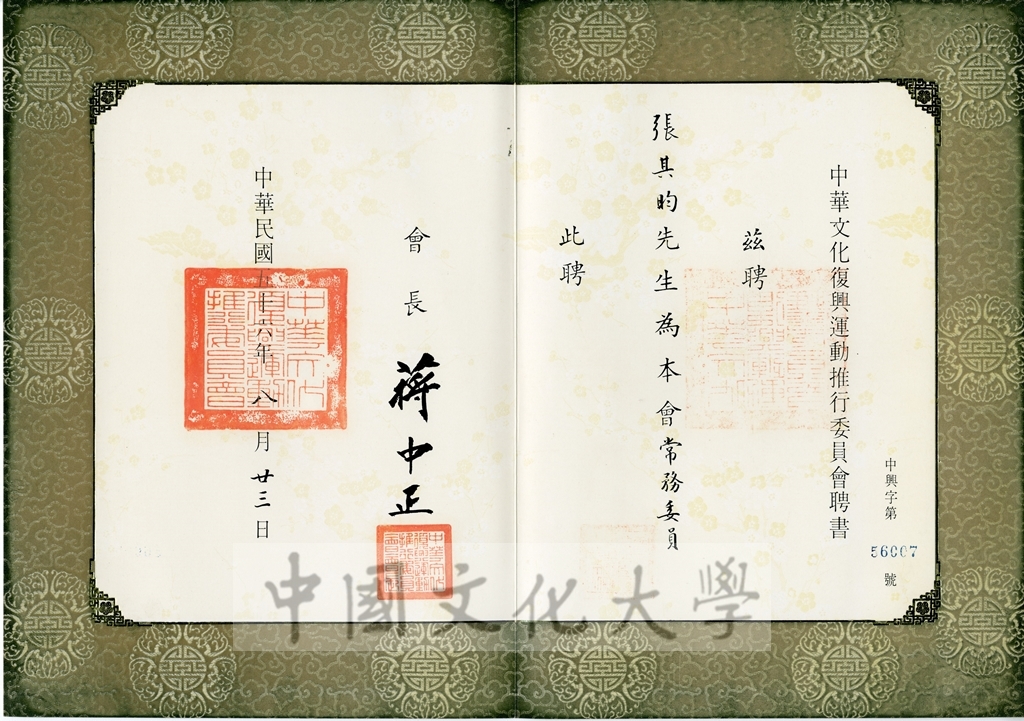 中華文化復興運動推行委員會聘書
中興字第
56007
號
茲聘
張其昀先生為本會常務委員
此聘
會長
蔣中正
中華民國五十六年八月廿三日
中華文化復興運動推行委員會
中國文化大學